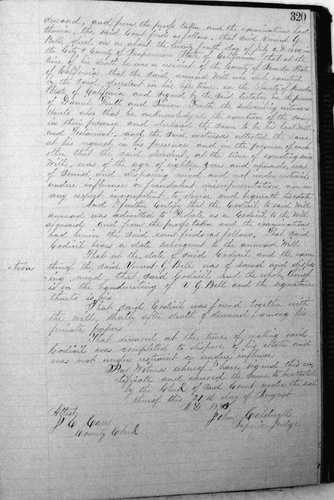 320
deceased, and from the proofs taken and the examinations had
therein, the said Court finds as follows, that said Vincent G.
Bell, died on or about the twenty fourth day of July A.D. 18
the City & County of San Francisco State of California, that at the
time of his death he was a resident of the County of
of California that the said annexed Will was duly executed
by the said decedent in his life time, in the County of
State of California and signed by the said testator in the presence
of Daniel and the subscribing witnesses
thereto also that he acknowledged the execution of the same
in their presence and declared the same to be his last Will
and Testament, and the said witnesses attested the same
at his request in his presence and in the presence of each
other that the said decedent, at the time of executing said
Will, was of the age of eighteen years and upwards, was
of sound and disposing mind and not under restraint,
undue influence or fraudulent misrepresentation nor in
any respect incompetent to devise and bequeath his estate.
And I further certify that the Codicil to said Will
annexed was admitted to Probate as a Codicil to the Will
annexed and from the proofs taken and the examinations
had therein the said Court finds as follows, That said
Codicil bears a date subsequent to the annexed Will.
That at the date of said Codicil and the
thereof the said Vincent G Bell was of sound and dispos-
ing mind, That said Codicil and the body thereof
is in the handwriting of V. G. Bell and the signature
thereto is his
That said Codicil was found together with
the will, shortly after death of deceased, among his
private papers
That deceased at the time of making said
Codicil was competent to dispose of his estate and
was not under restraint or undue influence
In Witness whereof I have signed this cer-
tificate and caused the same to be attested
by the Clerk of said Court under the seal
thereof this 21st day of August
A.D. 18
Attest,
J. C.
County Clerk
John
Superior Judge